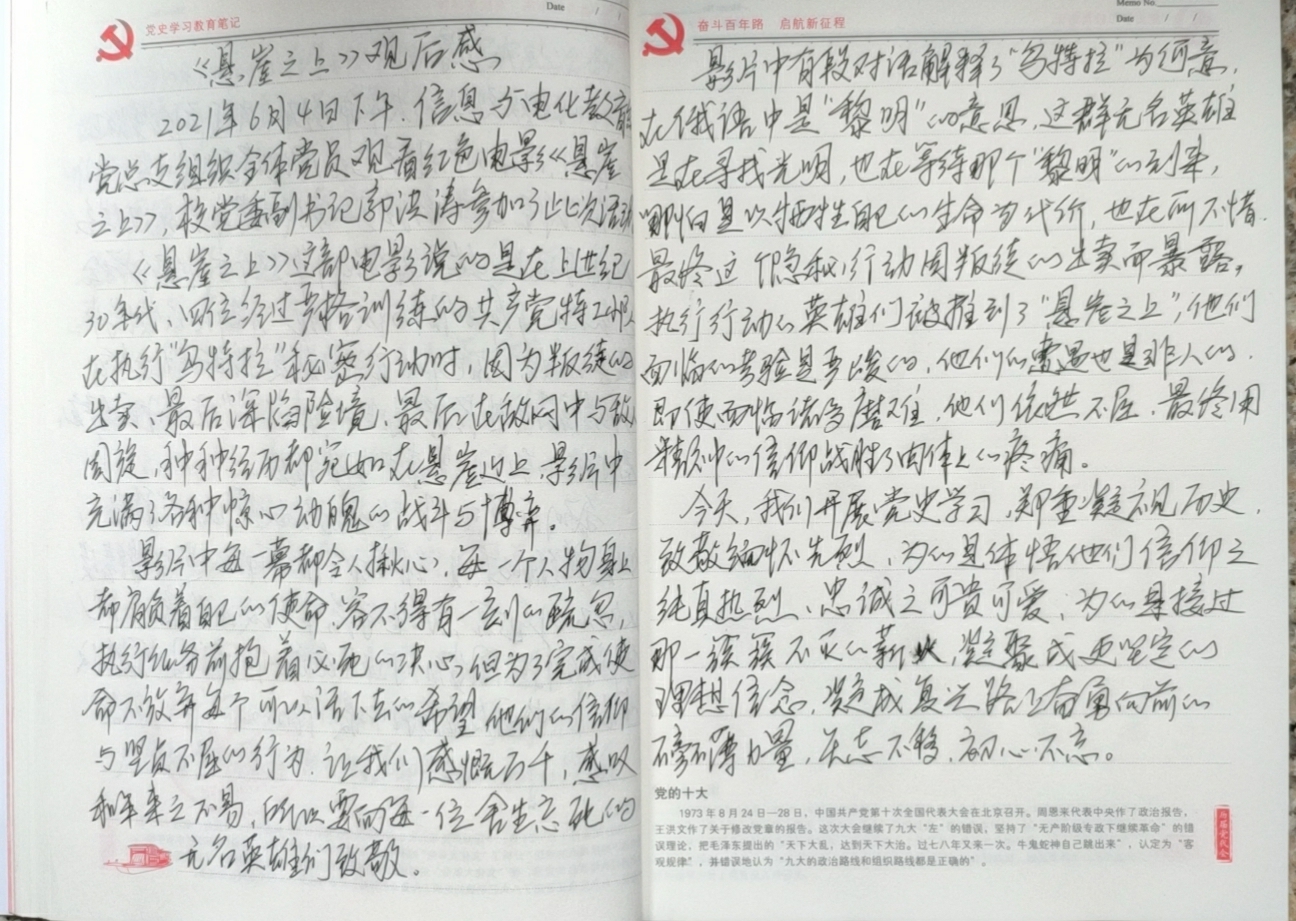 党史学习教育笔记
Date / /
《悬崖之上》观后感
2021年6月4日下午,信息与电化教育
党总支组织全体党员观看红色电影《悬崖
之上》,校党委副书记郭洪涛参加了此次活动
《悬崖之上》这部电影说的是在上世纪
30年代、四位经过严格训练的共产党特工小队
在执行"乌特拉"秘密行动时,因为叛徒的
出卖、最后深陷险境,最后在敌网中与敌
周旋,种种经历都宛如在悬崖边上,影片中
充满了各种惊心动魄的战斗与博弈。
影片中每一幕都令人揪心,每一个人物身上
都肩负着自己的使命,容不得有一刻的疏忽,
执行任务前抱着必死的决心,但为了完成使
命不放弃每个可以活下去的希望 他们的信仰
与坚贞不屈的行为,让我们感慨万千,感叹
和平来之不易,所以要向每一位舍生忘死的
无名英雄们致敬。
奋斗百年路 启航新征程
Memo No.
Date / /
影片中有段对话解释了"乌特拉"为何意,
在俄语中是"黎明"的意思,这群无名英雄
是在寻找光明,也在等待那个"黎明"的到来,
哪怕是以牺牲自己的生命为代价,也在所不惜.
最终这个隐秘行动因叛徒的出卖而暴露,
执行行动的英雄们被推到了"悬崖之上",他们
面临的考验是严峻的,他们的遭遇也是非人的.
即使面临诸多磨难,他们依然不屈,最终用
精神的信仰战胜了肉体上的疼痛。
今天,我们开展党史学习,郑重凝视历史,
致敬缅怀先烈,为的是体悟他们信仰之
纯真热烈、忠诚之可贵可爱,为的是接过
那一簇簇不灭的薪火,凝聚成更坚定的
理想信念,凝成复兴路上奋勇向前的
磅礴力量,矢志不移,初心不忘。
党的十大
1973年8月24日—28日,中国共产党第十次全国代表大会在北京召开。周恩来代表中央作了政治报告,
王洪文作了关于修改党章的报告。这次大会继续了九大"左"的错误,坚持了"无产阶级专政下继续革命"的错
误理论,把毛泽东提出的"天下大乱,达到天下大治。过七八年又来一次。牛鬼蛇神自己跳出来",认定为"客
观规律",并错误地认为"九大的政治路线和组织路线都是正确的"。